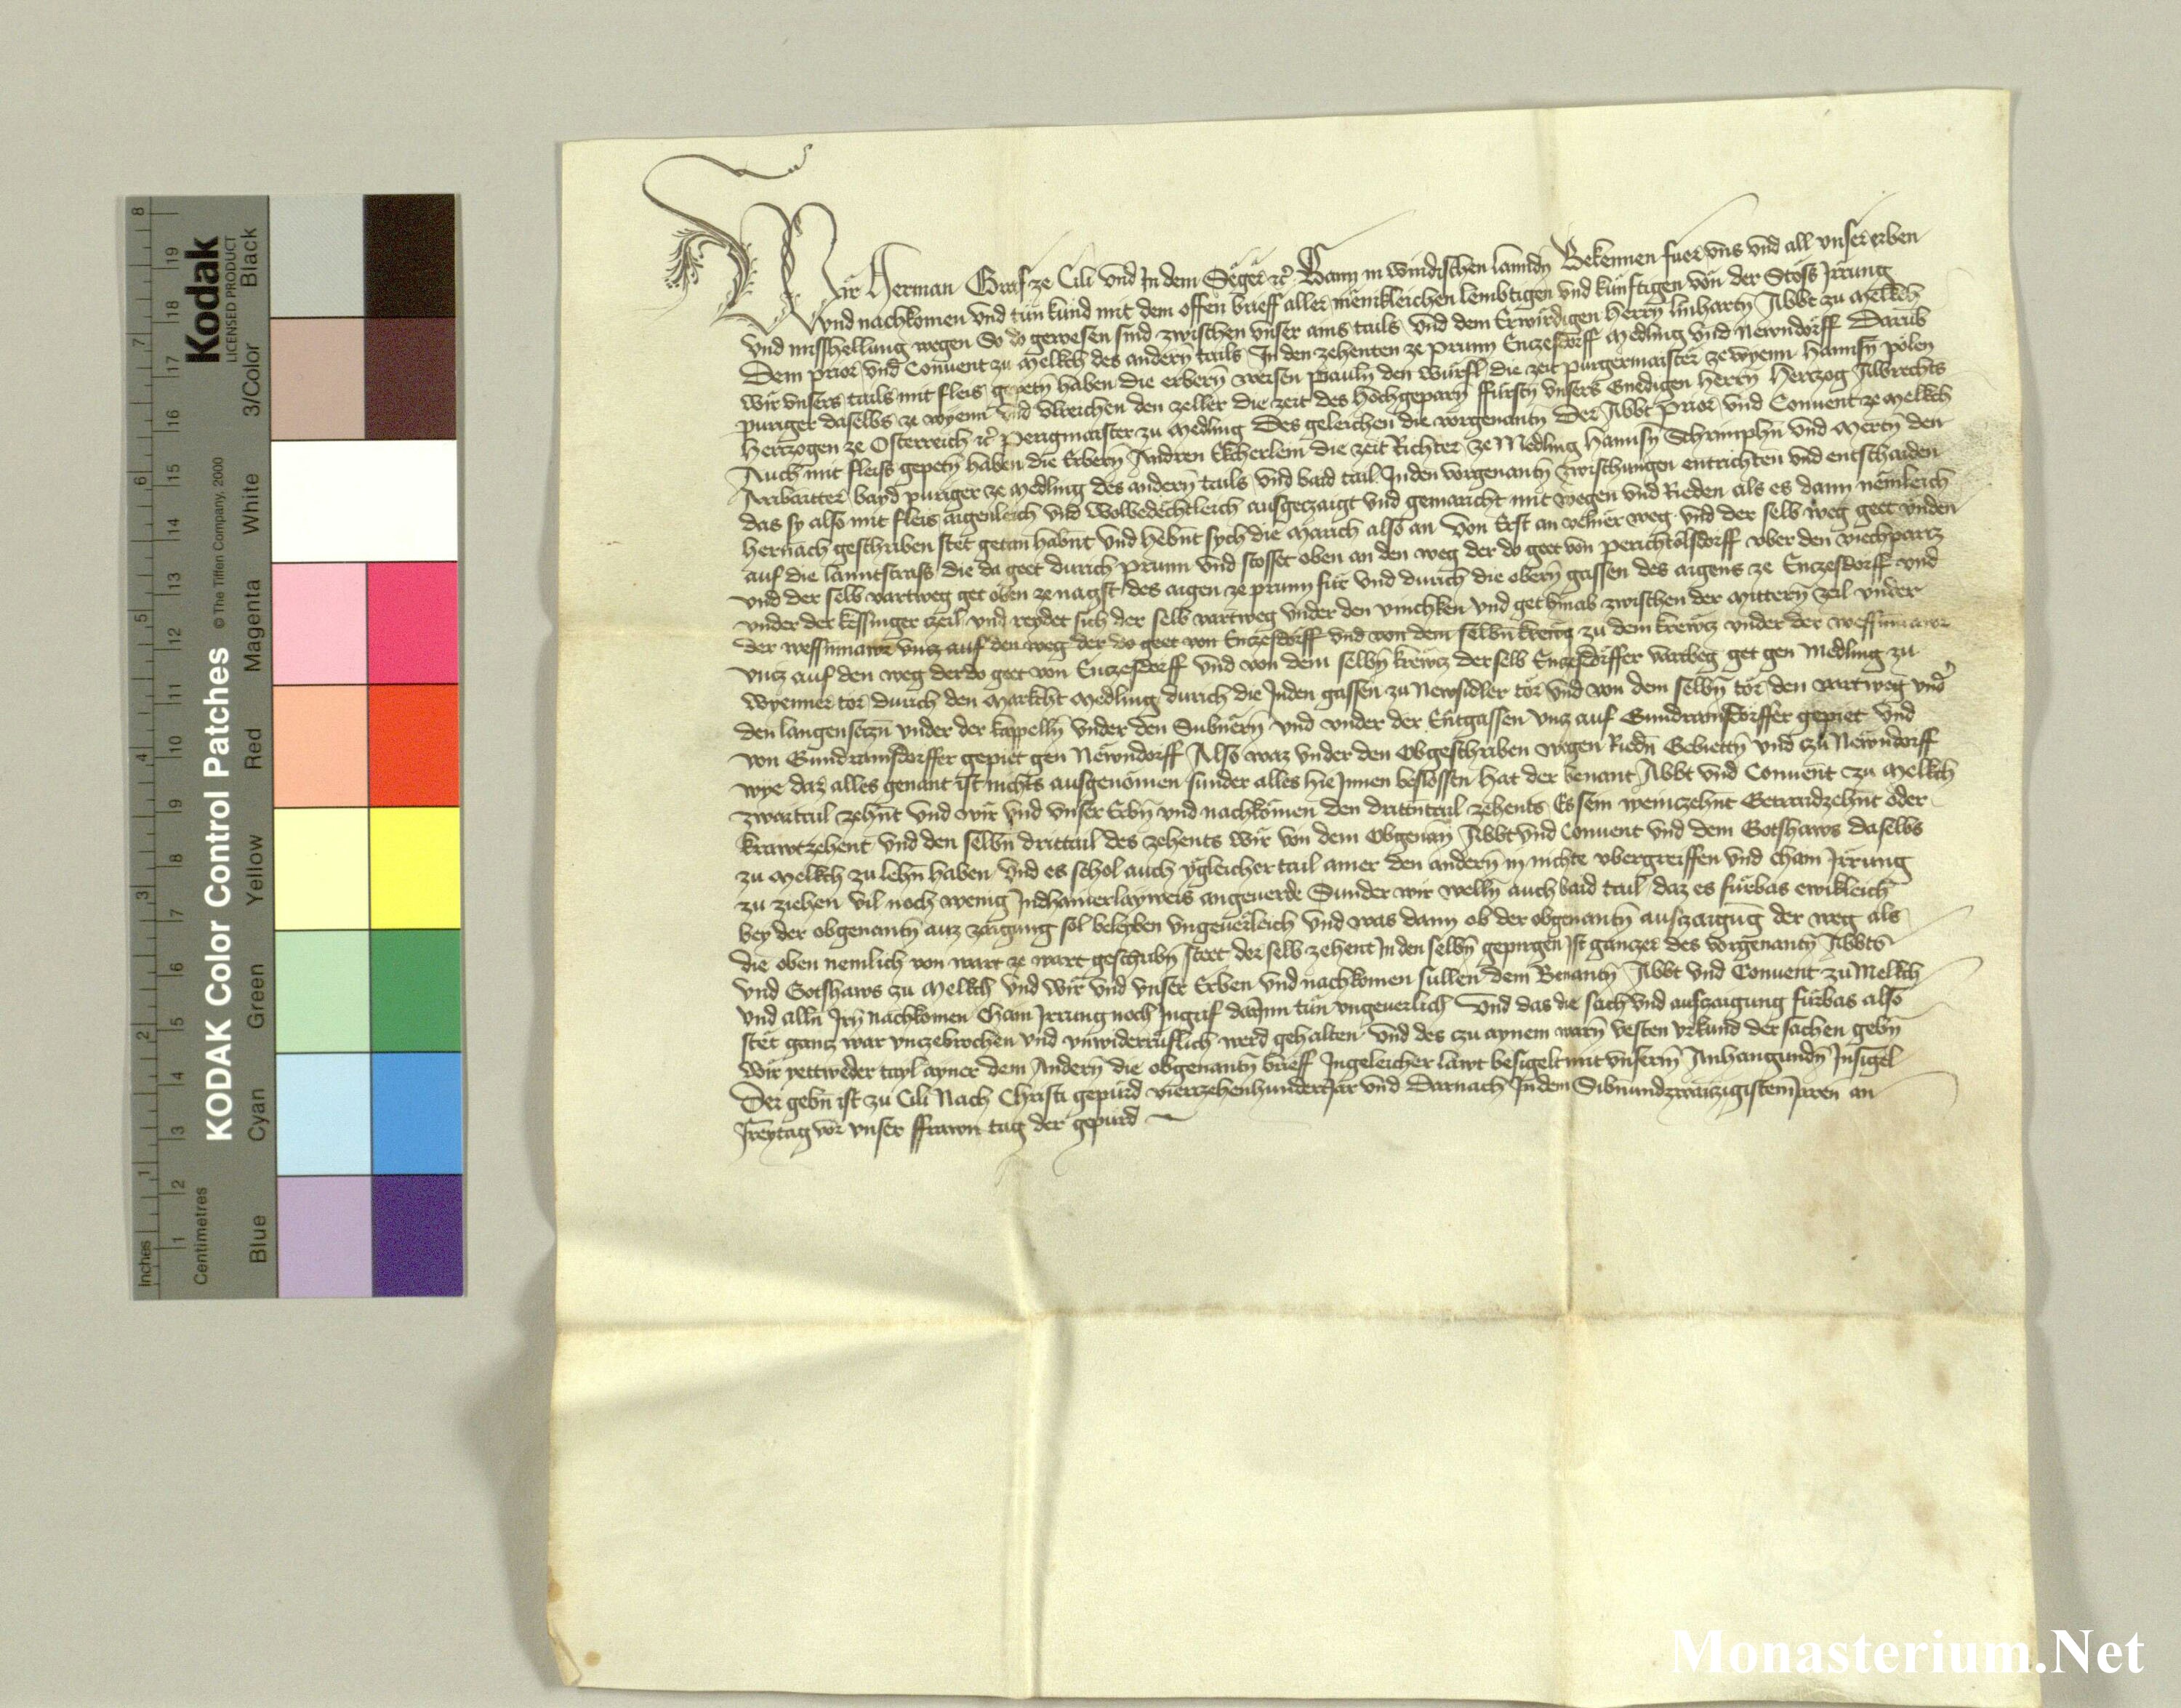 KODAK Color Control Patches
© The Tiffen Company, 2000
Kodak
LICENSED PRODUCT
Inches
1 2 3 4 5 6 7 8
Centimetres
1 2 3 4 5 6 7 8 9 10 11 12 13 14 15 16 17 18 19
Blue Cyan Green Yellow Red Magenta White 3/Color Black
Wir Herman Graf ze Cili vnd In dem Seger etc Bann in windischen lannden Bekennen fuer vns vnd all vnser erben
vnd nachkomen vnd tun kund mit dem offen brieff aller menikleichen lembtigen vnd kunftigen von der Stöss Irrung
vnd misshellung wegen So do gewesen sind zwischen vnser ains tails vnd dem Erwirdigen Herrn linhartn Abbt zu Melkch
Dem prior vnd Conuent zu Melkch des andern tails In den zehenten ze prunn Enczesdorff Medling vnd Newndorff Darub
wir vnsers tails mit fleis gepetn haben die erbern weisen pauln den würfl die zeit purgermaister ze wyenn Hannsn polen
purger daselbs ze wyenn vnd vlreichen den zeller die zeit des Hochgeparn ffürstn vnsers Gnedigen Herrn Herczog Albrechts
Herczogen ze Osterreich etc perigmaister zu Medling Des geleichen die vorgenantn Der Abbt prior vnd Conuent ze Melkch
Auch mit fleiss gepetn haben die Erbern Andren Ekcherlein die zeit Richter ze Medling Hannsn Schrimphn vnd Mertn den
bayd purger ze Medling des andern tails vnd baid tail In den vorgenantn zwischungen entrichten vnd entschaiden
das sy also mit fleis aigenleich vnd wolbedechtleich ausgeczaigt vnd gemaricht mit wegen vnd Rieden als es dann nemleich
hernach geschriben stet getan habnt vnd hebnt sych die March also an von Erst an velner weg vnd der selb weg geet vnden
auf die lanntstrass die da geet durich prunn vnd stosset oben an den weg der do geet von perichtolsdorff vber den viechpartz
vnd der selb vartweg get oben ze nagst des aigen ze prunn für vnd durich die obern gassen des aigens ze Enczesdorff vnd
vnder der kessinger zeil vnd reydet sich der selb vartweg vnder den vinchken vnd get hinab zwischen der Mittern zeil vnder
der vncz auf den weg der do geet von Enczesdorff vnd von dem selbn krewcz zu dem krewcz vnder der
vncz auf den weg der do geet von Enczesdorff vnd von dem selbn krewcz der selb Enczesdorffer vartweg get gen Medling zu
wyenner tor durich den Markcht Medling durich die Juden gassen zu Newsidler tor vnd von dem selbn tor den vartweg vnd
den langen seczn vnder der kappelln vnder den Subnern vnd vnder der Entgassen vncz auf Gundramsdorffer gepiet vnd
von Gundramsdorffer gepiet gen Newndorff Also waz vnder den Obgeschriben wegen Riedn Gebiettn vnd zu Newndorff
wye daz alles genant ist nichts ausgenomen sunder alles hie Innen beslossen hat der benant Abbt vnd Conuent zu Melkch
zwaitail zehnt vnd wir vnd vnser Erbn vnd nachkomen den dritntail zehents Es sein weinczehnt Getraidzehnt oder
krawtzehent vnd den selbn drittail des zehents wir von dem Obgenan Abbt vnd Conuent vnd dem Gotshaws daselbs
zu Melkch zu lehn haben vnd es schol auch ygleicher tail ainer den andern in nichte vbergreiffen vnd chain Irrung
zu ziehen vil noch wenig Indhainerlayweis angeuerde Sunder wir welln auch baid tail daz es fürbas ewikleich
bey der obgenantn auz zaigung sol beleyben vngeuerleich vnd was dann ob der obgenantn auszaigung der weg als
die oben nemlich von wart ze wart geschribn steet der selb zehent In den selbn gepirgen ist ganczer des vorgenantn Abbts
vnd Gotshaws zu Melkch vnd wir vnd vnser Erben vnd nachkomen sullen dem Benantn Abbt vnd Conuent zu Melkch
vnd alln Irn nachkomen chain Irrung noch Ingrif darinn tun vngeuerlich vnd das die sach vnd auszaigung fürbas also
stet gancz war vnczebrochen vnd vnwiderruflich werd gehalten vnd des zu aynem warn vesten vrkund der sachen gebn
wir yettweder tayl ayner dem Andern die obgenantn brieff Ingeleicher lawt besigelt mit vnserm Anhangundn Insigel
Der gebn ist zu Cili Nach Christi gepürd vierczehenhundert Jar vnd Darnach In dem Sibnundzwainzigistem Jaren an
freytag vor vnser ffrawn tag der gepurd
Monasterium.Net